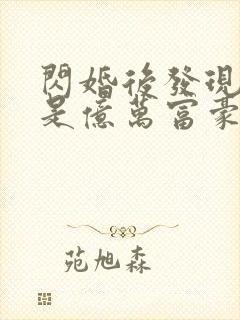 閃婚後發現
是億萬富豪
苑旭森